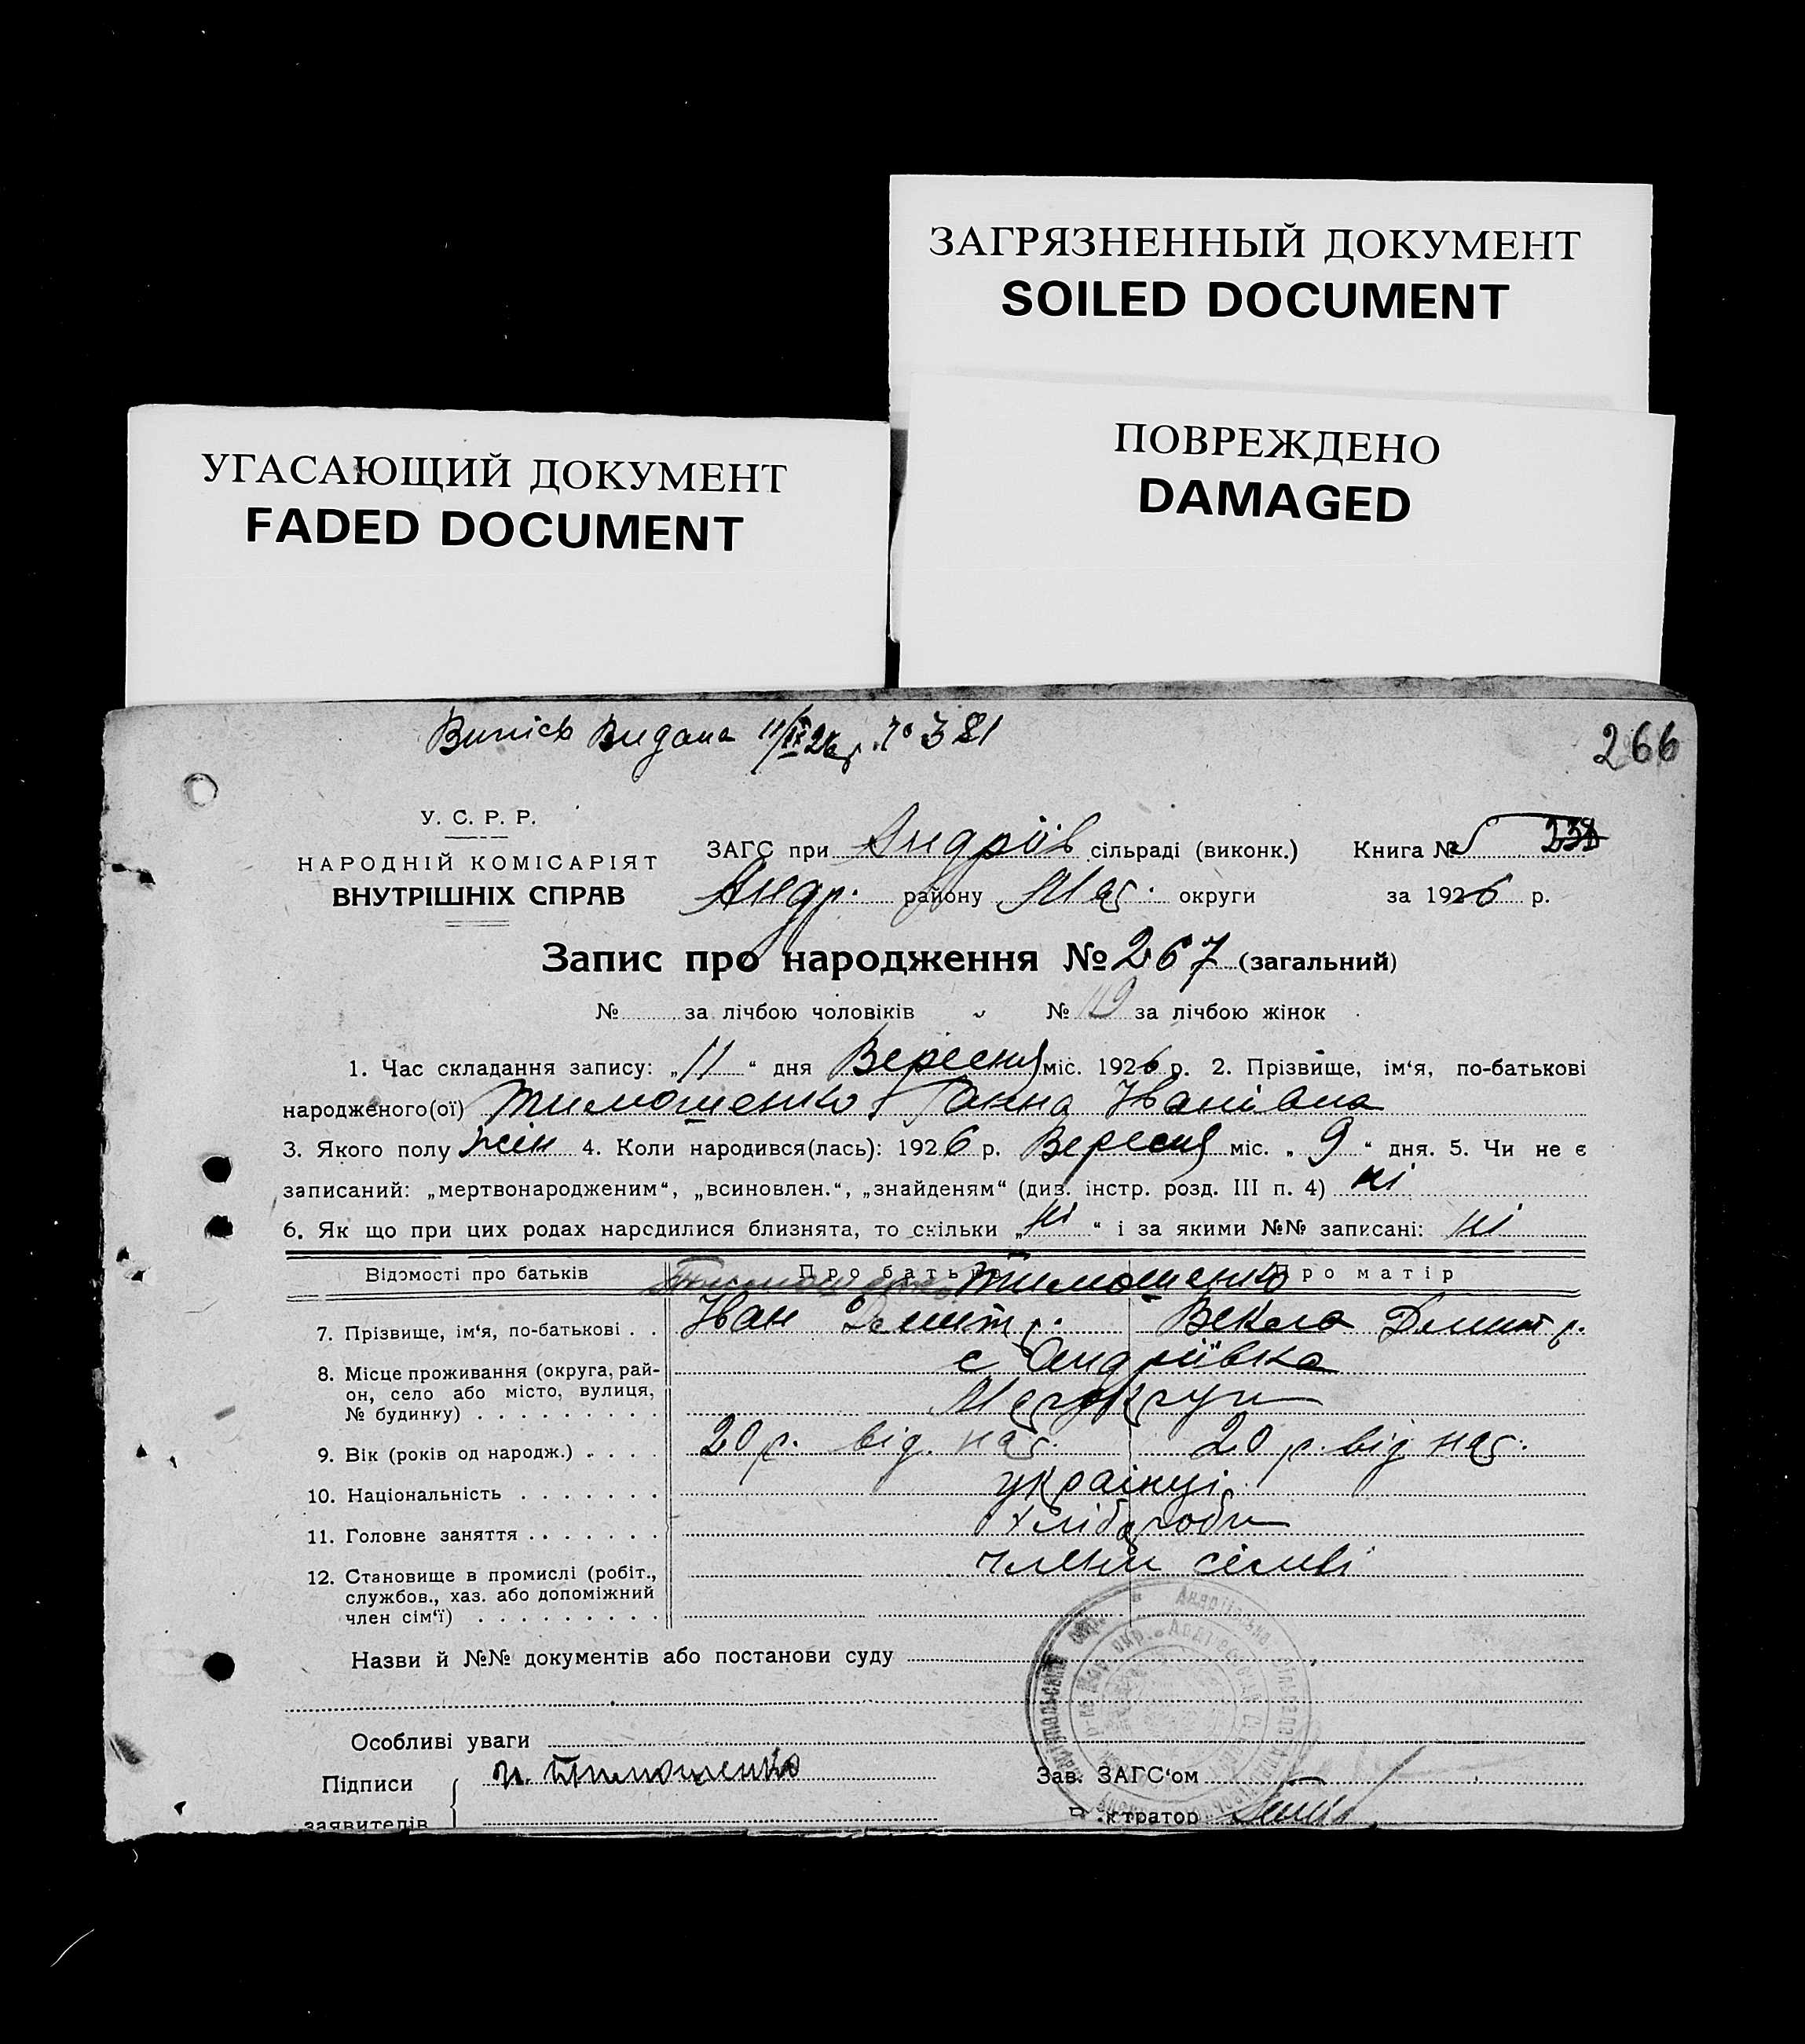 ЗАГРЯЗНЕННЫЙ ДОКУМЕНТ
SOILED DOCUMENT
УГАСАЮЩИЙ ДОКУМЕНТ
FADED DOCUMENT
ПОВРЕЖДЕНО
DAMAGED
Випісь Видана 11/IX 26 р. № 381
266
У. С. Р. Р.
НАРОДНІЙ КОМІСАРІЯТ
ВНУТРІШНІХ СПРАВ
ЗАГС при Андріїв сільраді (виконк.) Книга № 238
Андр. району Мар. округи за 1926 р.
Запис про народження № 267 (загальний)
№ за лічбою чоловіків № 119 за лічбою жінок
1. Час складання запису: „11“ дня Вересня міс. 1926 р. 2. Прізвище, ім‘я, по-батькові
народженого(ої) Тимошенко Ганна Іванівна
3. Якого полу жін 4. Коли народився(лась): 1926 р. Вересня міс. „9“ дня. 5. Чи не є
записаний: „мертвонародженим“, „всиновлен.“, „знайденям“ (див. інстр. розд. III п. 4) ні
6. Як що при цих родах народилися близнята, то скільки „ні“ і за якими №№ записані: ні
Відомості про батьків Про батька Про матір
Тимошенко Тимошенко
7. Прізвище, ім‘я, по-батькові . . Іван Дмитр. Векла Дмитр.
8. Місце проживання (округа, рай-
он, село або місто, вулиця,
№ будинку) . . . . . . . . .
с Андріївка
Мар округи
9. Вік (років од народж.) . . . . 20 р. від нар. 20 р. від нар.
10. Національність . . . . . . . українці
11. Головне заняття . . . . . . . хлібороби
12. Становище в промислі (робіт.,
службов., хаз. або допоміжний
член сім‘ї) . . . . . . . . .
члени сімві
Назви й №№ документів або постанови суду
Особливі уваги
Підписи
заявителів
и. Тимошенко
Зав. ЗАГС‘ом
ктратор